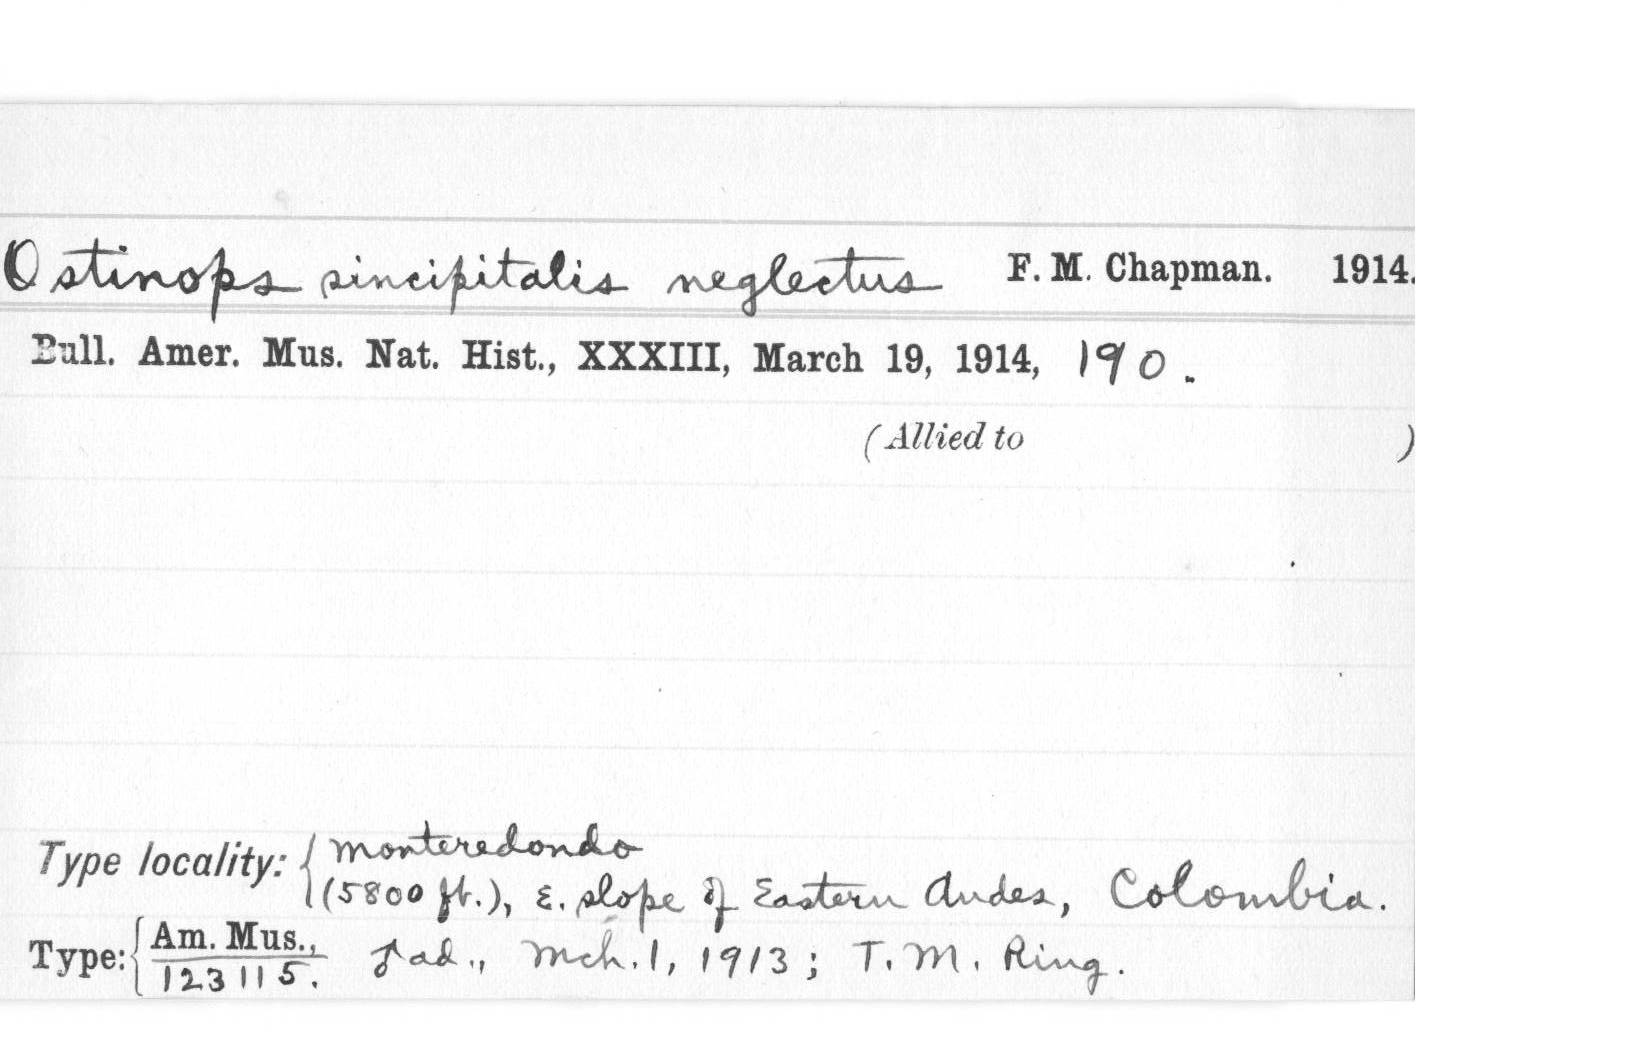 Ostinops sincipitalis neglectus F. M. Chapman. 1914.
Bull. Amer. Mus. Nat. Hist., XXXIII, March 19, 1914, 190.
(Allied to )
Type locality: { Monteredondo
(5800 ft.), E. slope of Eastern Andes, Colombia.
Type: { Am. Mus., ♂ ad., Mch. 1, 1913; T. M. Ring.
123115.